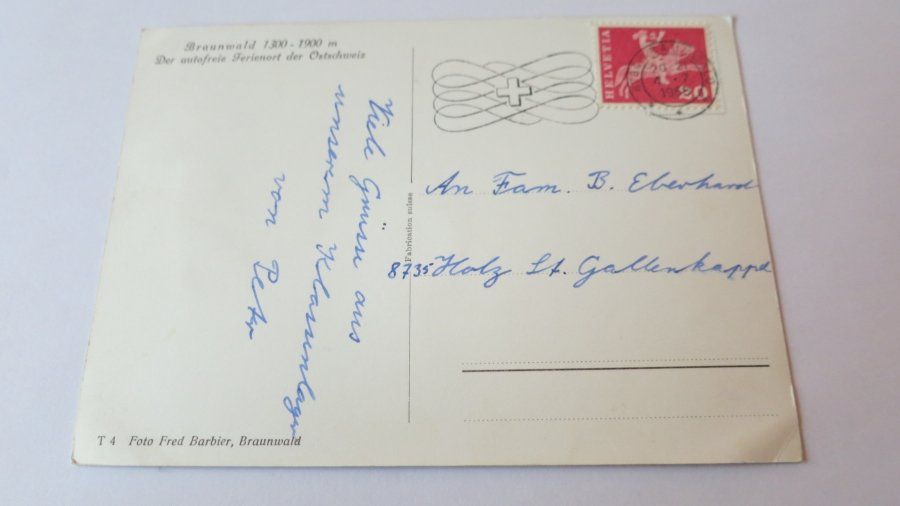 Braunwald 1300 - 1900 m
Der autofreie Ferienort der Ostschweiz
Viele Grüsse aus
unserem Klassenlager
von Peter
Fabrication suisse
HELVETIA
20
An Fam. B. Eberhard
8735 Holz St. Gallenkappel
T 4 Foto Fred Barbier, Braunwald